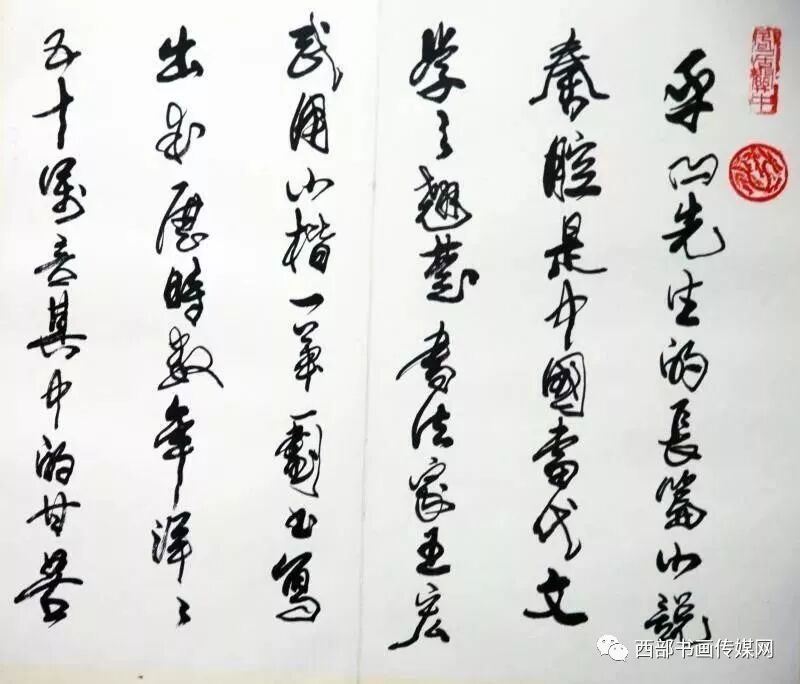 平凹先生的長篇小說
秦腔是中國當代文
學之翹楚書法家王宏
武用小楷一筆一劃书寫
出来歷時數年洋洋
五十萬言其中的甘苦
西部书画传媒网